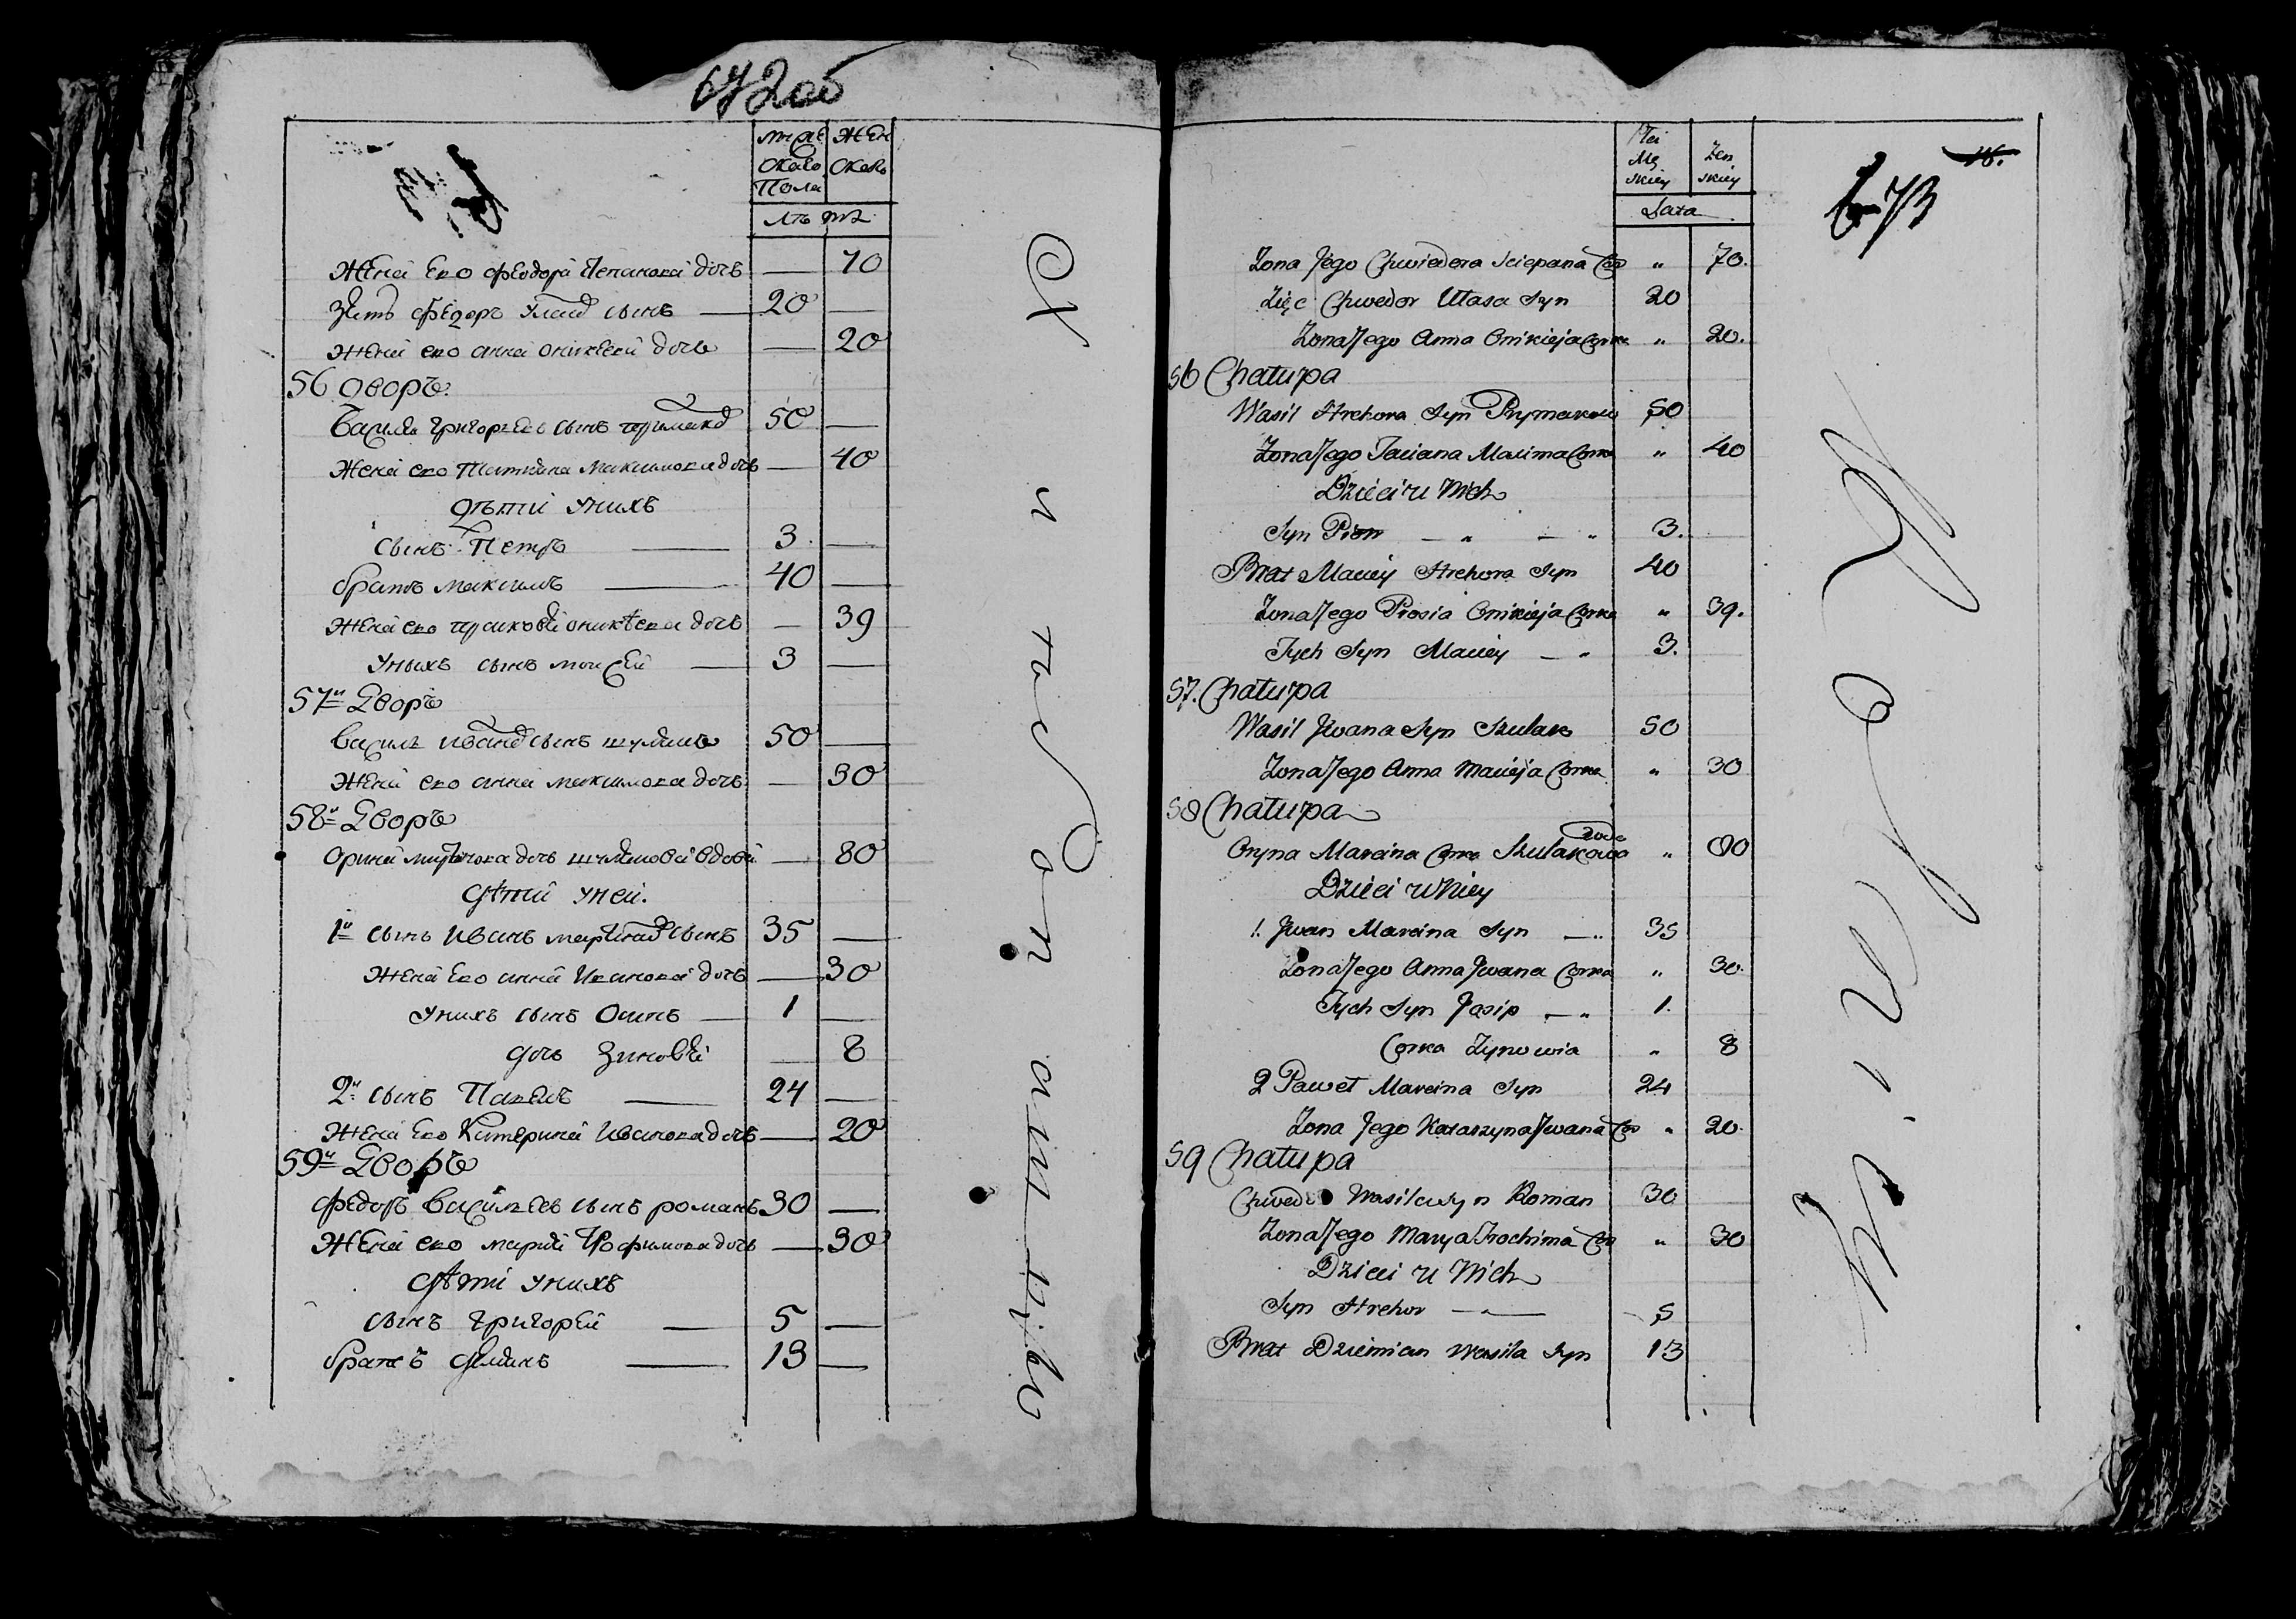 672 об
Мужескаго Пола
Женскаго
Лѣта
Жена Его Феодора Степанова дочь — 70
Зять Федоръ Улас сынъ — 20 —
Жена его анна оникѣева дочь — 20
56 Дворъ
Василь григорьевъ сынъ примакъ 50 —
Жена его Татьяна Максимова дочь — 40
дѣти уних
сынъ Петръ — 3 —
братъ максимъ — 40 —
жена его прасковья оникѣева дочь — 39
уных сынъ моисѣй — 3 —
57й Дворъ
Василь иванов сынъ шуляк 50 —
Жена его анна максимова дочь — 30
58й Дворъ
орина мартинова дочь шулякова вдова — 80
Дѣти уней.
1й сынъ Иванъ мартинов сынъ 35 —
жена Его анна Иванова дочь — 30
уних сынъ Осипъ — 1 —
дочь Зиновья — 8
2й сынъ Павелъ — 24 —
Жена Его Катерина Иванова дочь — 20
59й Дворъ
Федоръ Васильевъ сынъ романъ 30 —
Жена его марья Трофимова дочь — 30
Дѣти уних
сынъ григорей — 5 —
братъ Демианъ — 13 —
Płci Męskiey
Żenskiey
Lata
18.
673
Zona Jego Chwiedora Sciepana Cor „ 70.
Zięc Chwedor Ułasa Syn 20
Zona Jego Anna Onikieja Corka „ 20.
56 Chałupa
Wasil Hrehora Syn Prymakow 50
Zona Jego Taciana Maxima Corka „ 40
Dzieci u Nich
Syn Piotr — „ — „ 3.
Brat Maciey Hrehora Syn 40
Zona Jego Prosia Onikieja Corka „ 39.
Tych Syn Maciey — „ 3.
57. Chałupa
Wasil Jwana Syn Szulak 50
Zona Jego Anna Macieja Corka „ 30
58 Chałupa
Oryna Marcina Corka Szulakowa Wdo „ 80
Dzieci u Niey
1. Jwan Marcina Syn — „ 35
Zona Jego Anna Jwana Corka „ 30.
Tych Syn Josip — „ 1.
Corka Zynowia „ 8
2 Paweł Marcina Syn 24
Zona Jego Katarzyna Jwana Cor „ 20
59 Chałupa
Chwedor Wasila Syn Roman 30
Zona Jego Marya Trochima Cor „ 30
Dzieci u Nich
Syn Hrehor — „ — 5
Brat Dziemian Wasila Syn 13